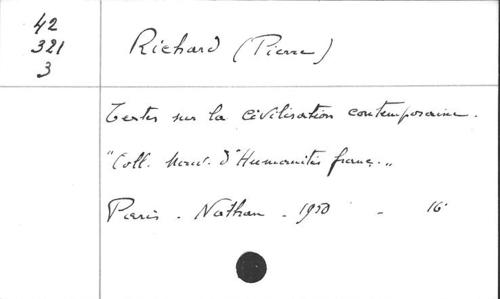 42
321
3
Richard (Pierre)
Textes sur la civilisation contemporaine.
"Coll. Nouv. d'Humanités franç.„
Paris. Nathan. 1950 - 16°